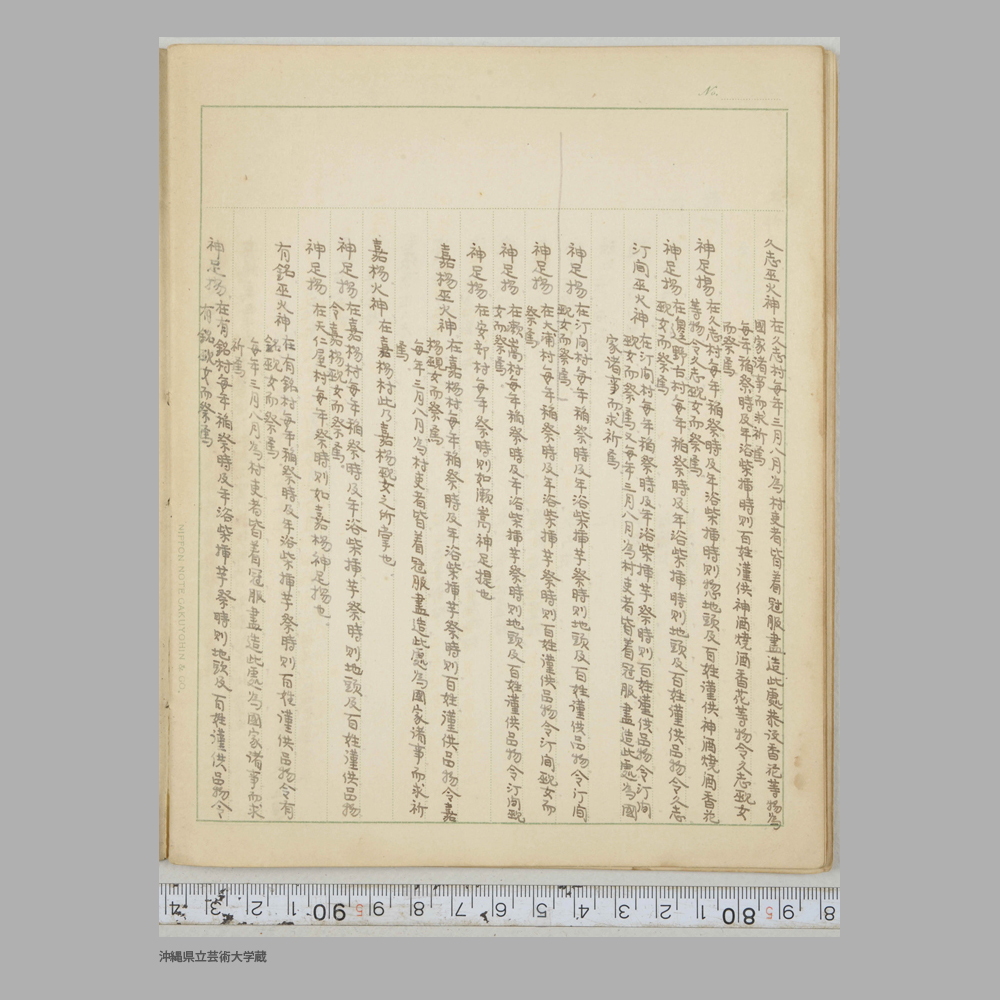 No.
久志巫火神 在久志村每年三月八月為村吏者皆着冠服盡造此處恭设香花等物為
國家诸事而求祈焉
每年稲祭時及年浴柴揷時则百姓谨供神酒焼酒香花等物令久志巫女
而祭焉
神足揚 在久志村每年稲祭時及年浴柴揷時则惣地頭及百姓谨供神酒焼酒香花
等物令久志巫女而祭焉
神足揚 在邊野古村每年稲祭時及年浴柴揷芋祭時则地頭及百姓谨供品物令久志
巫女而祭焉
汀间巫火神 在汀间村每年稲祭時及年浴柴揷芋祭時则百姓谨供品物令汀间
巫女而祭焉又每年三月八月為村吏者皆着冠服盡造此處為國
家诸事而求祈焉
神足揚 在汀间村每年稲祭時及年浴柴揷芋祭時则地頭及百姓谨供品物令汀间
巫女而祭焉
神足揚 在大浦村每年稲祭時及年浴柴揷芋祭時则百姓谨供品物令汀间巫女而
祭焉
神足揚 在瀬嵩村每年稲祭時及年浴柴揷芋祭時则地頭及百姓谨供品物令汀间巫
女而祭焉
神足揚 在安部村每年祭時则如瀬嵩神足揚也
嘉楊巫火神 在嘉楊村每年稲祭時及年浴柴揷芋祭時则百姓谨供品物令嘉
楊巫女而祭焉
每年三月八月為村吏者皆着冠服盡造此處為國家诸事而求祈
焉
嘉楊火神 在嘉楊村此乃嘉楊巫女之所掌也
神足揚 在嘉楊村每年稲祭時及年浴柴揷芋祭時则地頭及百姓谨供品物
令嘉楊巫女而祭焉
神足揚 在天仁屋村每年祭時则如嘉楊神足揚也
有銘巫火神 在有銘村每年稲祭時及年浴柴揷芋祭時则百姓谨供品物令有
銘巫女而祭焉
每年三月八月為村吏者皆着冠服盡造此處為國家诸事而求
祈焉
神足揚 在有銘村每年稲祭時及年浴柴揷芋祭時则地頭及百姓谨供品物令
有銘巫女而祭焉
NIPPON NOTE GAKUYOHIN & CO.,
4 3 2 1 90 9 8 7 6 5 4 3 2 1 80 9 8
沖縄県立芸術大学蔵